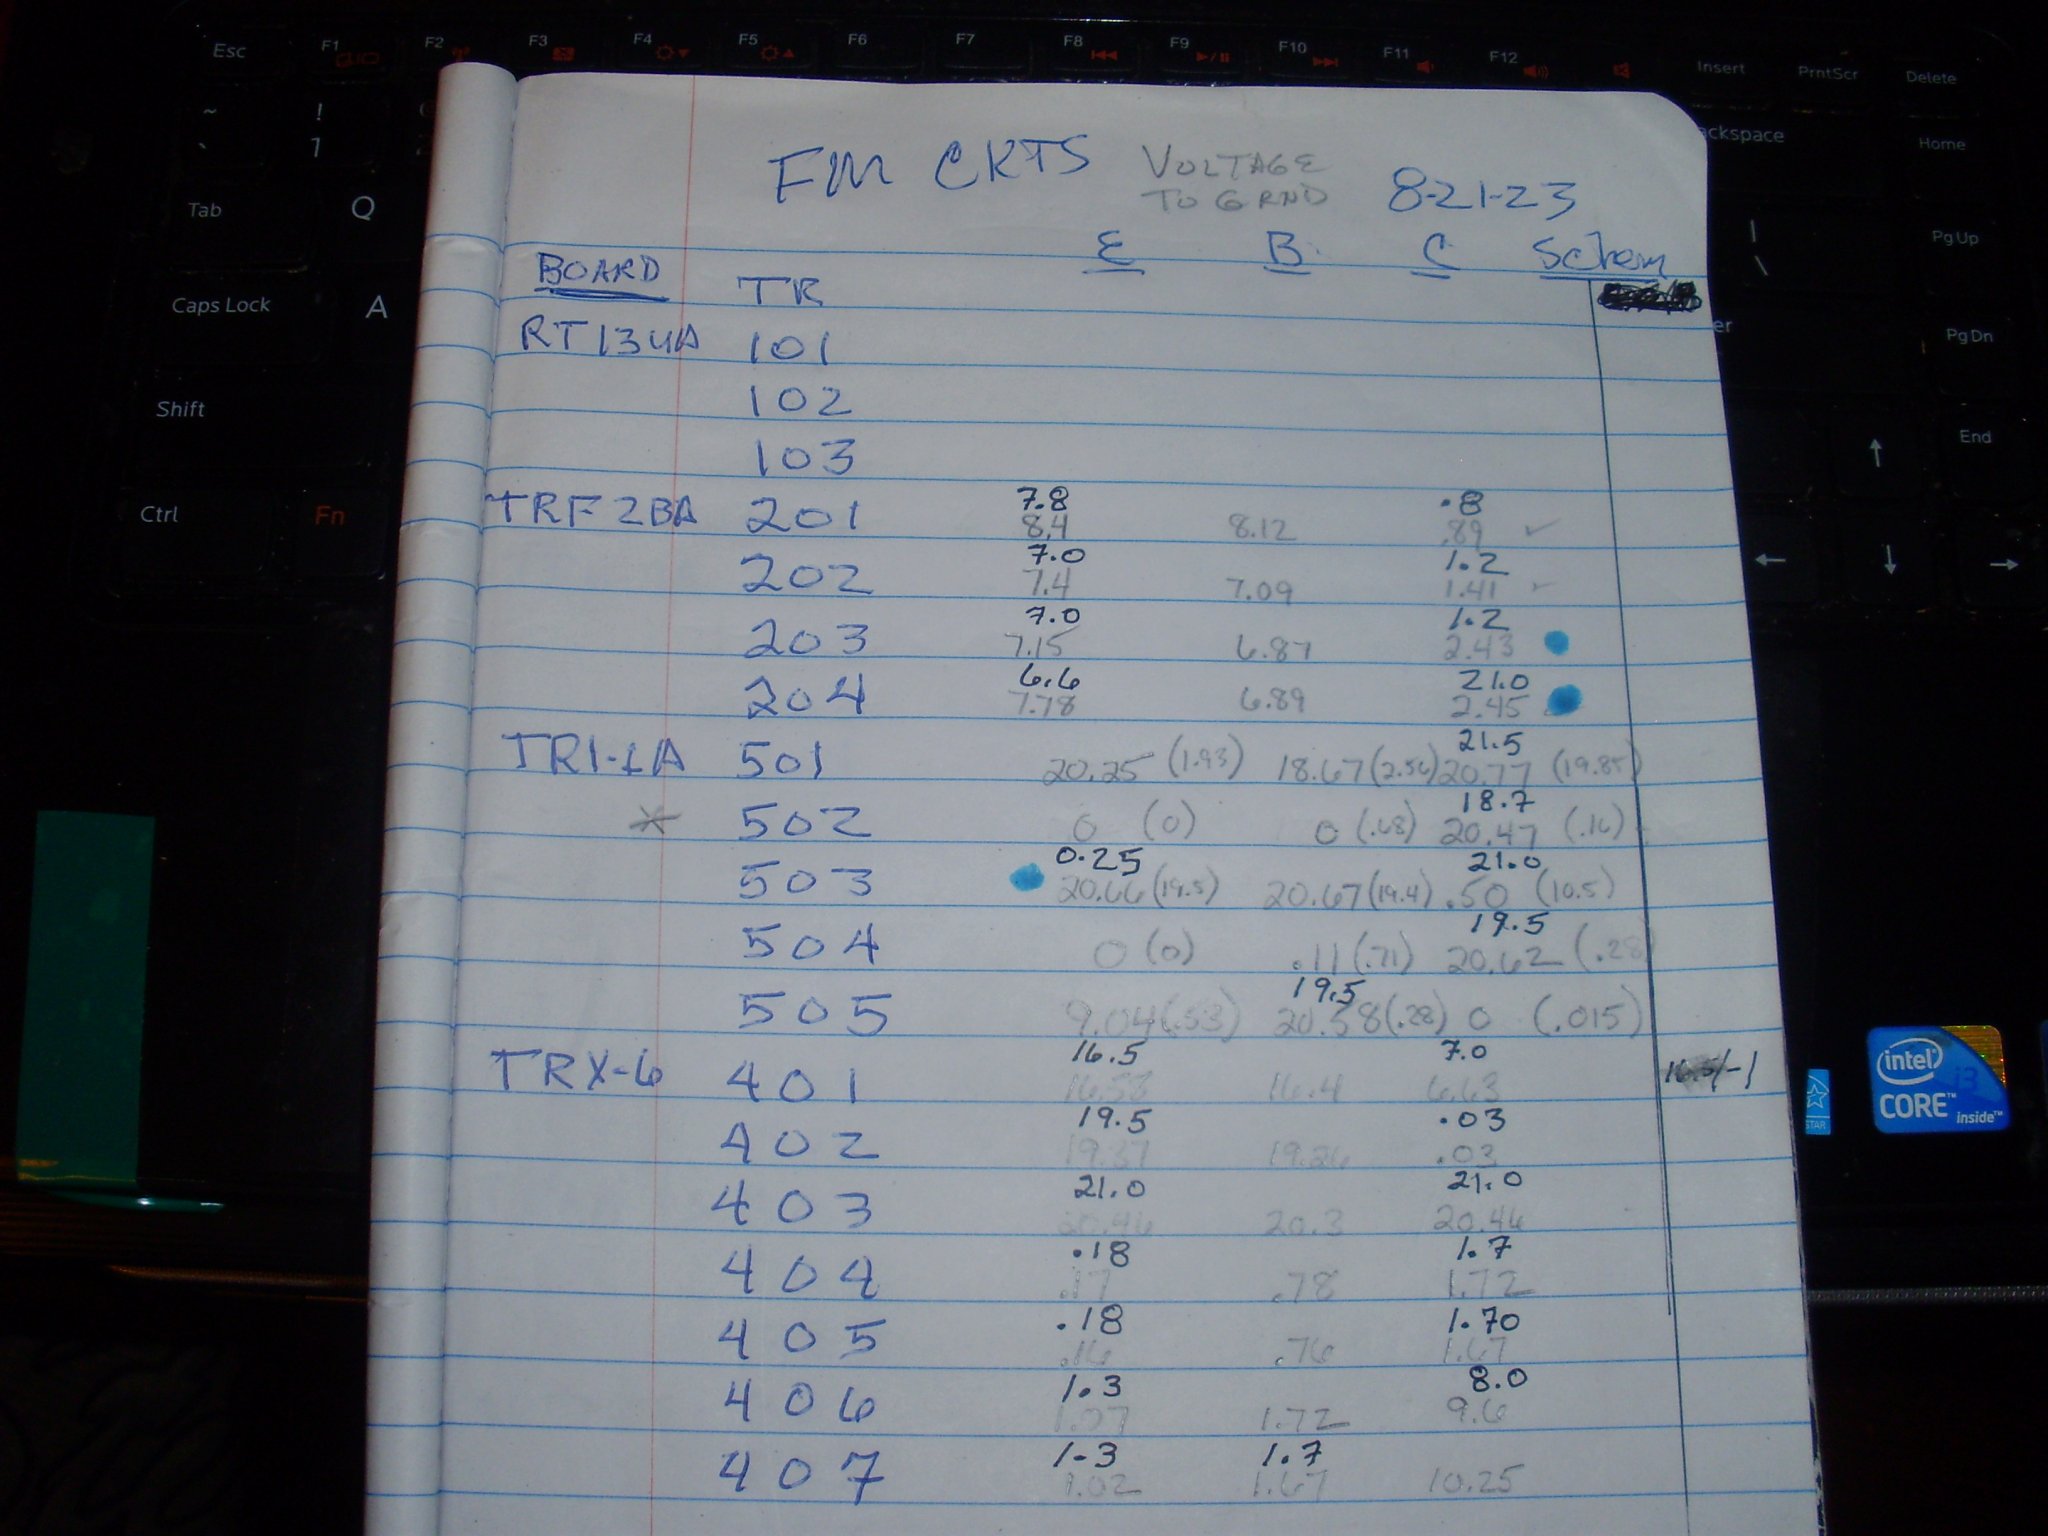 Esc F1 F2 F3 F4 F5 F6 F7 F8 F9 F10 F11 F12 Insert PrntScr Delete
~ ! ackspace Home
` 1
Tab Q | Pg Up
\
Caps Lock A er Pg Dn
Shift End
Ctrl Fn
FM CKTS VOLTAGE TO GRND 8-21-23
BOARD TR E B C Schem
RT134A 101
102
103
7.8 .8
TRF2BA 201 8.4 8.12 .89 ✓
7.0 1.2
202 7.4 7.09 1.41 ✓
7.0 1.2
203 7.15 6.87 2.43
6.6 21.0
204 7.78 6.89 2.45
21.5
TR1-1A 501 20.25 (1.93) 18.67 (2.56) 20.77 (19.85)
18.7
* 502 0 (0) 0 (.68) 20.47 (.16)
0.25 21.0
503 20.66 (19.5) 20.67 (19.4) .50 (10.5)
19.5
504 0 (0) .11 (.71) 20.62 (.28
19.5
505 9.04 (.53) 20.58 (.28) 0 (.015)
16.5 7.0
TRX-6 401 16.53 16.4 6.63
19.5 .03
402 19.37 19.26 .03
21.0 21.0
403 20.46 20.3 20.46
.18 1.7
404 .17 .78 1.72
.18 1.70
405 .16 .76 1.67
1.3 8.0
406 1.07 1.72 9.6
1-3 1.7
407 1.02 1.67 10.25
intel
i3
CORE™
inside™
STAR